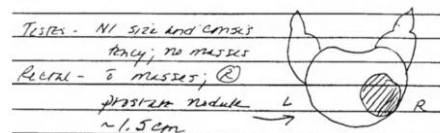 Testes - Nl size and consis
tency; no masses
Rectal - c̄ masses; Ⓡ
prostate nodule
~1.5cm
L R